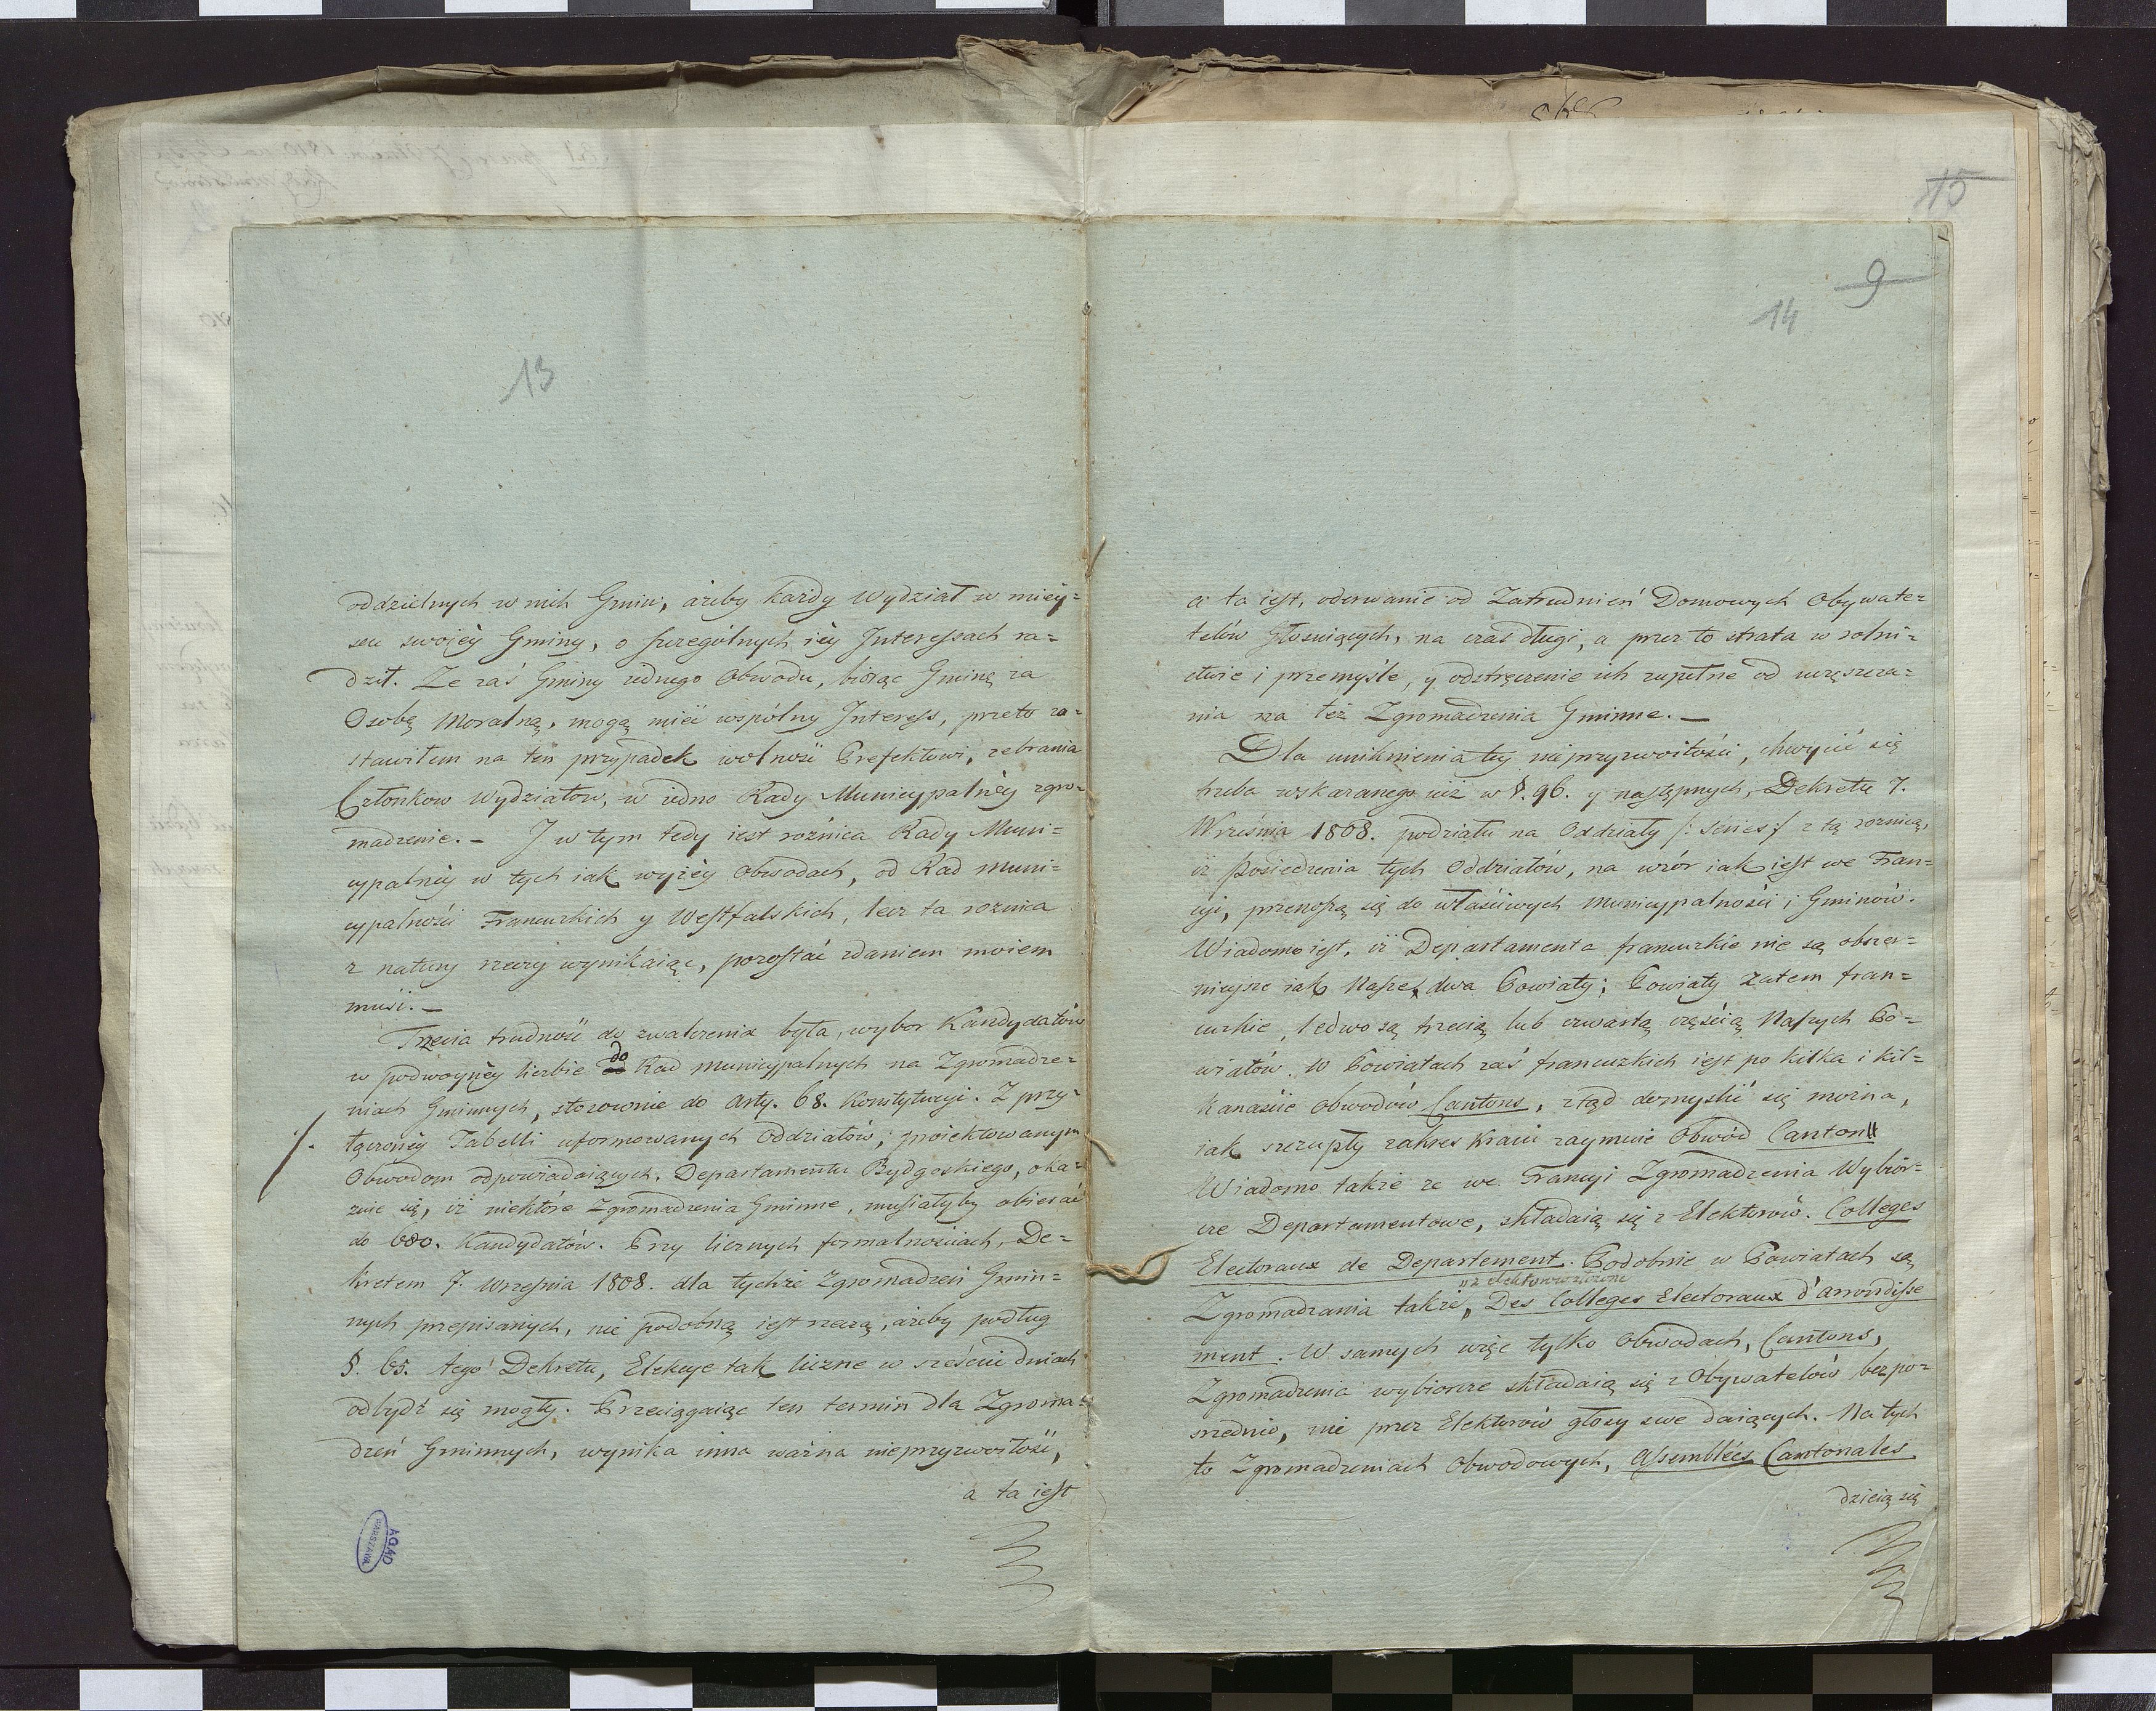 13
oddzielnych w nich Gmin, ażeby każdy Wydział w miey=
scu swojéy Gminy, o szczególnych iéy Interessach ra=
dził. Ze zaś Gminy iednego Obwodu, biorąc Gminę za
Osobę Moralną, mogą mieć wspólny Interess, przeto zo=
stawiłem na ten przypadek wolność Prefektowi, zebrania
Członkow Wydziałow, w iedno Rady Municypalnéy zgro=
madzenie. — I w tym tedy iest rożnica Rady Muni=
cypalnéy w tych iak wyżéy Obwodach, od Rad Muni=
cypalności Francuzkich y Westfalskich, lecz ta roznica
z natury rzeczy wynikaiąc, pozostać zdaniem moiem
musi. —
Trzecia trudność do zwalczenia była, wybor Kandydatów
w podwoynéy liczbie do Rad Municypalnych na Zgromadze=
niach Gminnych, stosownie do Arty. 68. Konstytucyi. Z przy=
łączonéy Tabelli uformowanych Oddziałów, proiektowanym
Obwodom odpowiadaiących, Departamentu Bydgoskiego, oka=
zuie się, iż niektóre Zgromadzenia Gminne, musiałyby obierać
do 680. Kandydatów. Przy licznych formalnościach, De=
kretem 7. Września 1808. dla tychże Zgromadzeń Gmin=
nych przepisanych, nie podobną iest rzeczą, ażeby podług
§. 65. tego Dekretu, Elekcye tak liczne w sześciu dniach
odbydź się mogły. Przeciągaiąc ten termin dla Zgroma=
dzeń Gminnych, wynika inna ważna nieprzyzwoitość,
a ta iest
AGAD
WARSZAWA
15
9
14
a ta iest, oderwanie od Zatrudnień Domowych Obywate=
telów głosuiących, na czas długi, a przez to strata w rolni=
ctwie i przemyśle, y odstręczenie ich zupełne od uczęszcza=
nia na też Zgromadzenia Gminne. —
Dla uniknienia tey nieprzyzwoitości, chwycić się
trzeba wskazanego iuż w §. 96. y następnych, Dekretu 7.
Września 1808. podziału na Oddziały /: Séries :/ z tą roznicą,
iż posiedzenia tych Oddziałów, na wzór iak iest we Fran=
cyi, przenoszą się do właściwych Municypalności i Gminów.
Wiadomo iest, iż Departamenta francuzkie nie są obszer=
nieysze iak Nasze dwa Powiaty; Powiaty zatem fran=
cuzkie, ledwo są trzecią lub czwartą częścią Naszych Po=
wiatów. W Powiatach zaś francuzkich iest po kilka i kil=
kanaście Obwodów Cantons, ztąd domyslić się można,
iak szczupły zakres Kraiu zaymuie Obwód Canton
Wiadomo także ze we Francyi Zgromadzenia Wybior=
cze Departamentowe, składaią się z Elektorów. Colleges
Electoraux de Departement. Podobnie w Powiatach są
Zgromadzania także, Des Colleges Electoraux d'arrondisse
ment. W samych więc tylko Obwodach, Cantons,
Zgromadzenia wybiorcze składaią się z Obywatelów bezpo=
srednio, nie przez Elektorów głosy swe daiących. Na tych
to Zgromadzeniach Obwodowych, Assemblées Cantonales
dzieią się